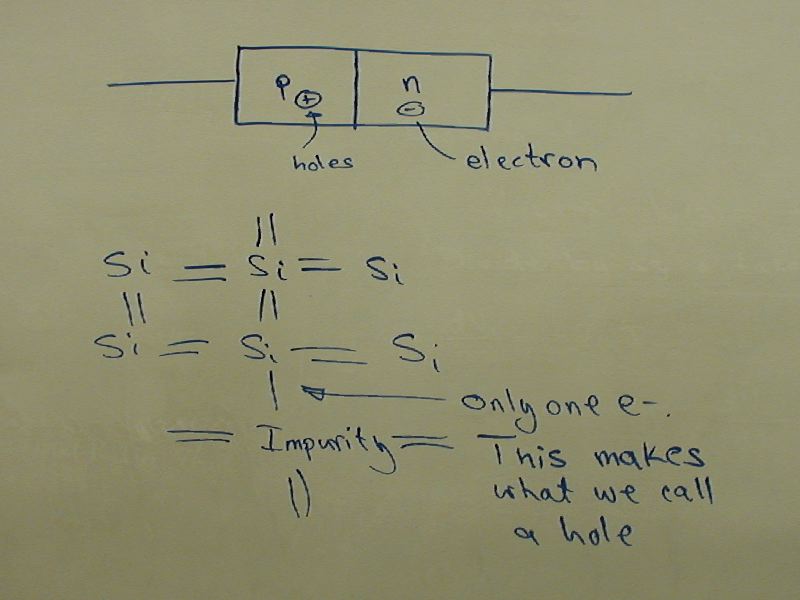 p ⊕ n ⊖
holes electron
Si = Si = Si
Si = Si = Si
only one e-.
= Impurity = This makes
what we call
a hole